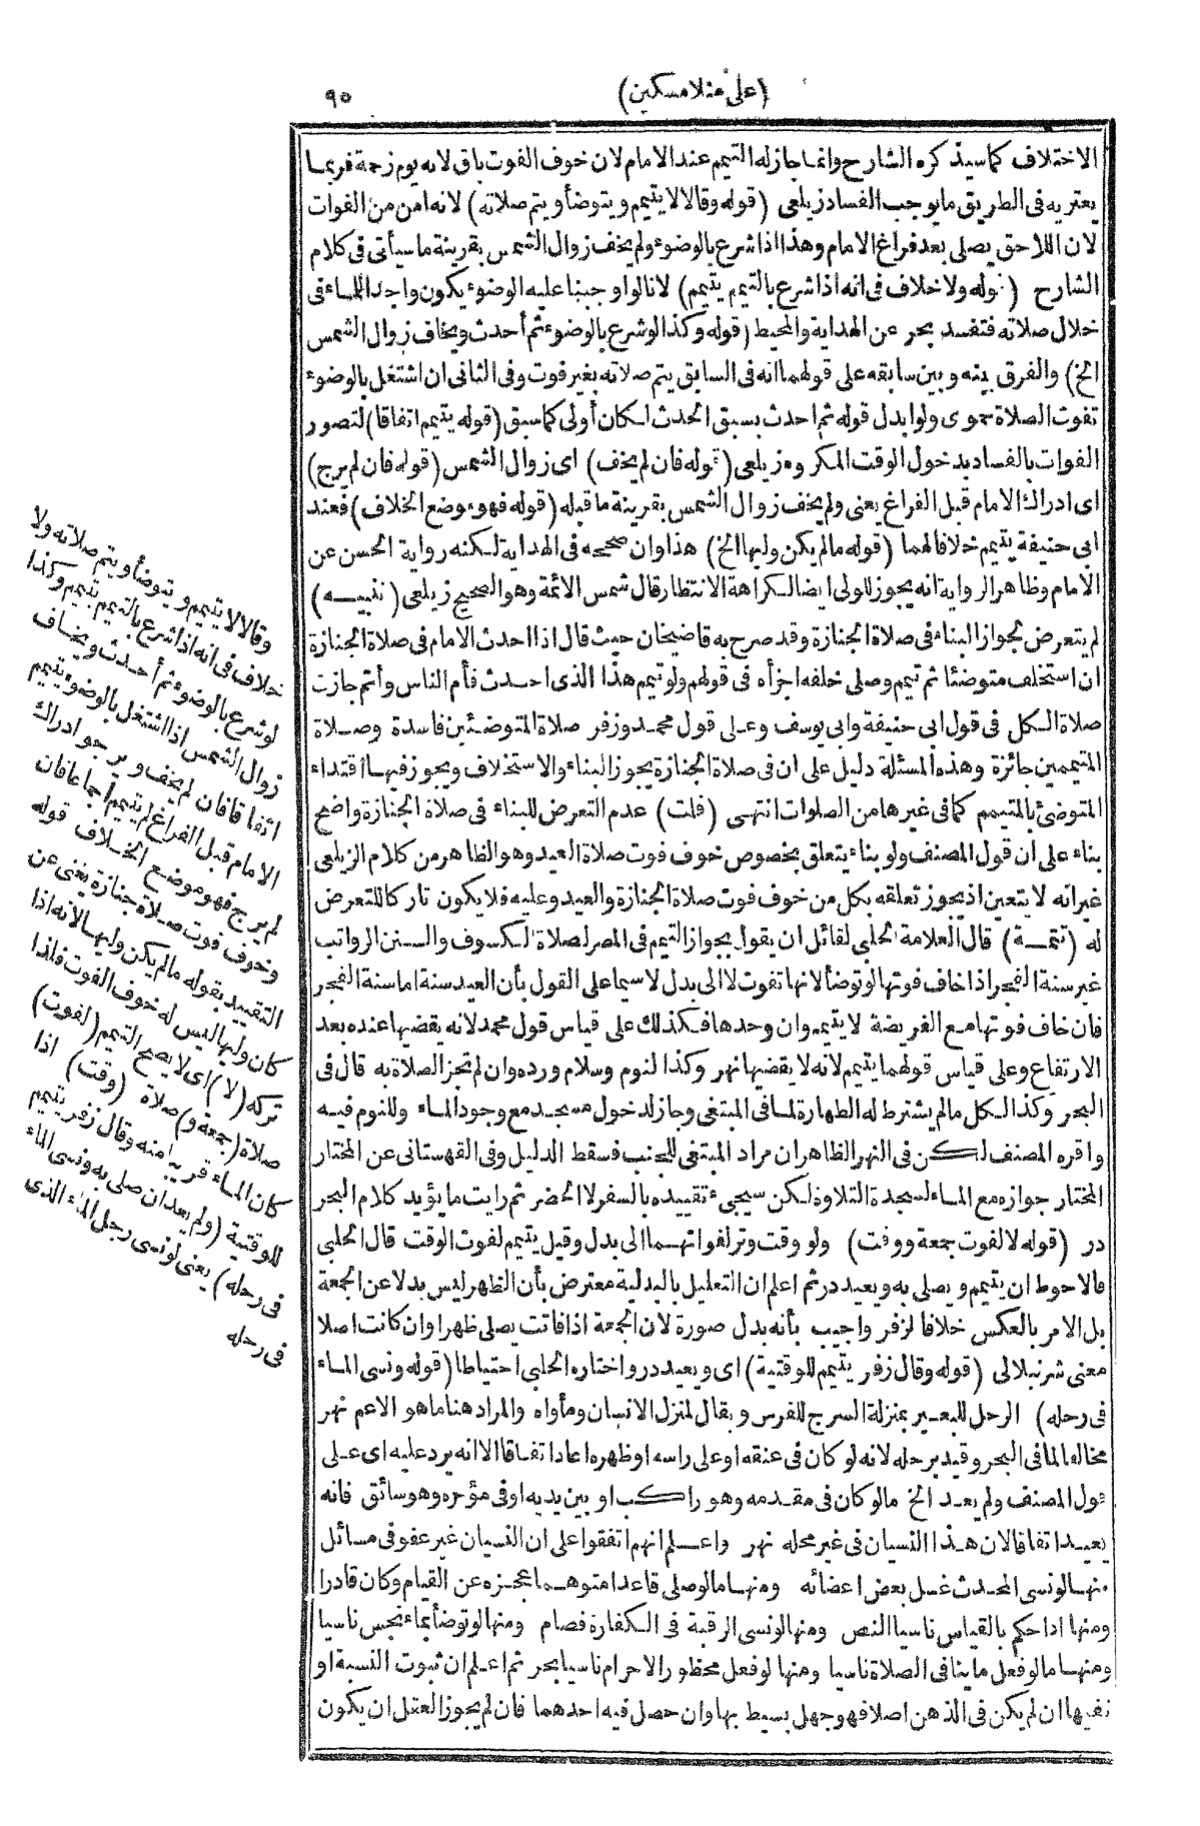 (على منلا مسكين)
٩٥
الاختلاف كما سيذكره الشارح وانما جاز له التيمم عند الامام لان خوف الفوت باق لانه يوم زحمة فربما
يعتريه فى الطريق ما يوجب الفساد زيلعى (قوله وقالا لا يتيمم ويتوضأ ويتم صلاته) لانه امن من الفوات
لان اللاحق يصلى بعد فراغ الامام وهذا اذا شرع بالوضوء ولم يخف زوال الشمس بقرينة ما سيأتى فى كلام
الشارح (قوله ولا خلاف فى انه اذا شرع بالتيمم يتيمم) لانا لو اوجبنا عليه الوضوء يكون واجدا للماء فى
خلال صلاته فتفسد بحر عن الهداية والمحيط (قوله وكذا لو شرع بالوضوء ثم أحدث ويخاف زوال الشمس
الخ) والفرق بينه وبين سابقه على قولهما انه فى السابق يتم صلاته بغير فوت وفى الثانى ان اشتغل بالوضوء
تفوت الصلاة حموى ولو ابدل قوله ثم احدث بسبق الحدث لكان أولى كما سبق (قوله يتيمم اتفاقا) لتصور
الفوات بالفساد بدخول الوقت المكروه زيلعى (قوله فان لم يخف) اى زوال الشمس (قوله فان لم يرج)
اى ادراك الامام قبل الفراغ يعنى ولم يخف زوال الشمس بقرينة ما قبله (قوله فهو موضع الخلاف) فعند
ابى حنيفة يتيمم خلافا لهما (قوله ما لم يكن وليها الخ) هذا وان صححه فى الهداية لكنه رواية الحسن عن
الامام وظاهر الرواية انه يجوز للولى ايضا لكراهة الانتظار قال شمس الائمة وهو الصحيح زيلعى (تنبيه)
لم يتعرض لجواز البناء فى صلاة الجنازة وقد صرح به قاضيخان حيث قال اذا احدث الامام فى صلاة الجنازة
ان استخلف متوضئا ثم تيمم وصلى خلفه اجزأه فى قولهم ولو تيمم هذا الذى احدث فأم الناس وأتم جازت
صلاة الكل فى قول ابى حنيفة وابى يوسف وعلى قول محمد وزفر صلاة المتوضئين فاسدة وصلاة
المتيممين جائزة وهذه المسئلة دليل على ان فى صلاة الجنازة يجوز البناء والاستخلاف ويجوز فيها اقتداء
المتوضئ بالمتيمم كما فى غيرها من الصلوات انتهى (قلت) عدم التعرض للبناء فى صلاة الجنازة واضح
بناء على ان قول المصنف ولو بناء يتعلق بخصوص خوف فوت صلاة العيد وهو الظاهر من كلام الزيلعى
غير انه لا يتعين اذ يجوز تعلقه بكل من خوف فوت صلاة الجنازة والعيد وعليه فلا يكون تاركا للتعرض
له (تتمة) قال العلامة الحلبى لقائل ان يقول بجواز التيمم فى المصر لصلاة الكسوف والسنن الرواتب
غير سنة الفجر اذا خاف فوتها لو توضأ لانها تفوت لا الى بدل لا سيما على القول بأن العيد سنة اما سنة الفجر
فان خاف فوتها مع الفريضة لا يتيمم وان وحدها فكذلك على قياس قول محمد لانه يقضيها عنده بعد
الارتفاع وعلى قياس قولهما يتيمم لانه لا يقضيها نهر وكذا لنوم وسلام ورده وان لم تجز الصلاة به قال فى
البحر وكذا لكل ما لم يشترط له الطهارة لما فى المبتغى وجاز لدخول مسجد مع وجود الماء وللنوم فيه
واقره المصنف لكن فى النهر الظاهر ان مراد المبتغى للجنب فسقط الدليل وفى القهستانى عن المختار
المختار جوازه مع الماء لسجدة التلاوة لكن سيجىء تقييده بالسفر لا الحضر ثم رايت ما يؤيد كلام البحر
در (قوله لا لفوت جمعة ووقت) ولو وقت وتر لفواتهما الى بدل وقيل يتيمم لفوت الوقت قال الحلبى
فالاحوط ان يتيمم ويصلى به ويعيد در ثم اعلم ان التعليل بالبدلية معترض بأن الظهر ليس بدلا عن الجمعة
بل الامر بالعكس خلافا لزفر واجيب بأنه بدل صورة لان الجمعة اذا فاتت يصلى ظهرا وان كانت اصلا
معنى شرنبلالى (قوله وقال زفر يتيمم للوقتية) اى ويعيد در واختاره الحلبى احتياطا (قوله ونسى الماء
فى رحله) الرحل للبعير بمنزلة السرج للفرس ويقال لمنزل الانسان ومأواه والمراد هنا ما هو الاعم نهر
مخالفا لما فى البحر وقيد برحله لانه لو كان فى عنقه او على راسه او ظهره اعاد اتفاقا الا انه يرد عليه اى على
قول المصنف ولم يعد الخ ما لو كان فى مقدمه وهو راكب او بين يديه او فى مؤخره وهو سائق فانه
يعيد اتفاقا لان هذا النسيان فى غير محله نهر واعلم انهم اتفقوا على ان النسيان غير عفو فى مسائل
منها لو نسى المحدث غسل بعض اعضائه ومنها ما لو صلى قاعدا متوهما عجزه عن القيام وكان قادرا
ومنها اذا حكم بالقياس ناسيا النص ومنها لو نسى الرقبة فى الكفارة فصام ومنها لو توضأ بماء نجس ناسيا
ومنها ما لو فعل ما ينافى الصلاة ناسيا ومنها لو فعل محظور الاحرام ناسيا بحر ثم اعلم ان ثبوت النسبة او
نفيها ان لم يكن فى الذهن اصلا فهو جهل بسيط بها وان حصل فيه احدهما فان لم يجوز العقل ان يكون
وقالا لا يتيمم ويتوضأ ويتم صلاته ولا
خلاف فى انه اذا شرع بالتيمم يتيمم وكذا
لو شرع بالوضوء ثم أحدث ويخاف
زوال الشمس اذا اشتغل بالوضوء يتيمم
اتفاقا فان لم يخف ويرجو ادراك
الامام قبل الفراغ لم يتيمم اجماعا فان
لم يرج فهو موضع الخلاف قوله
وخوف فوت صلاة جنازة يغنى عن
التقييد بقوله ما لم يكن وليها لانه اذا
كان وليها ليس له خوف الفوت فلذا
تركه (لا) اى لا يصح التيمم (لفوت)
صلاة (جمعة و) صلاة (وقت) اذا
كان الماء قريبا منه وقال زفر يتيمم
للوقتية (ولم يعد ان صلى به ونسى الماء
فى رحله) يعنى لو نسى رجل الماء الذى
فى رحله